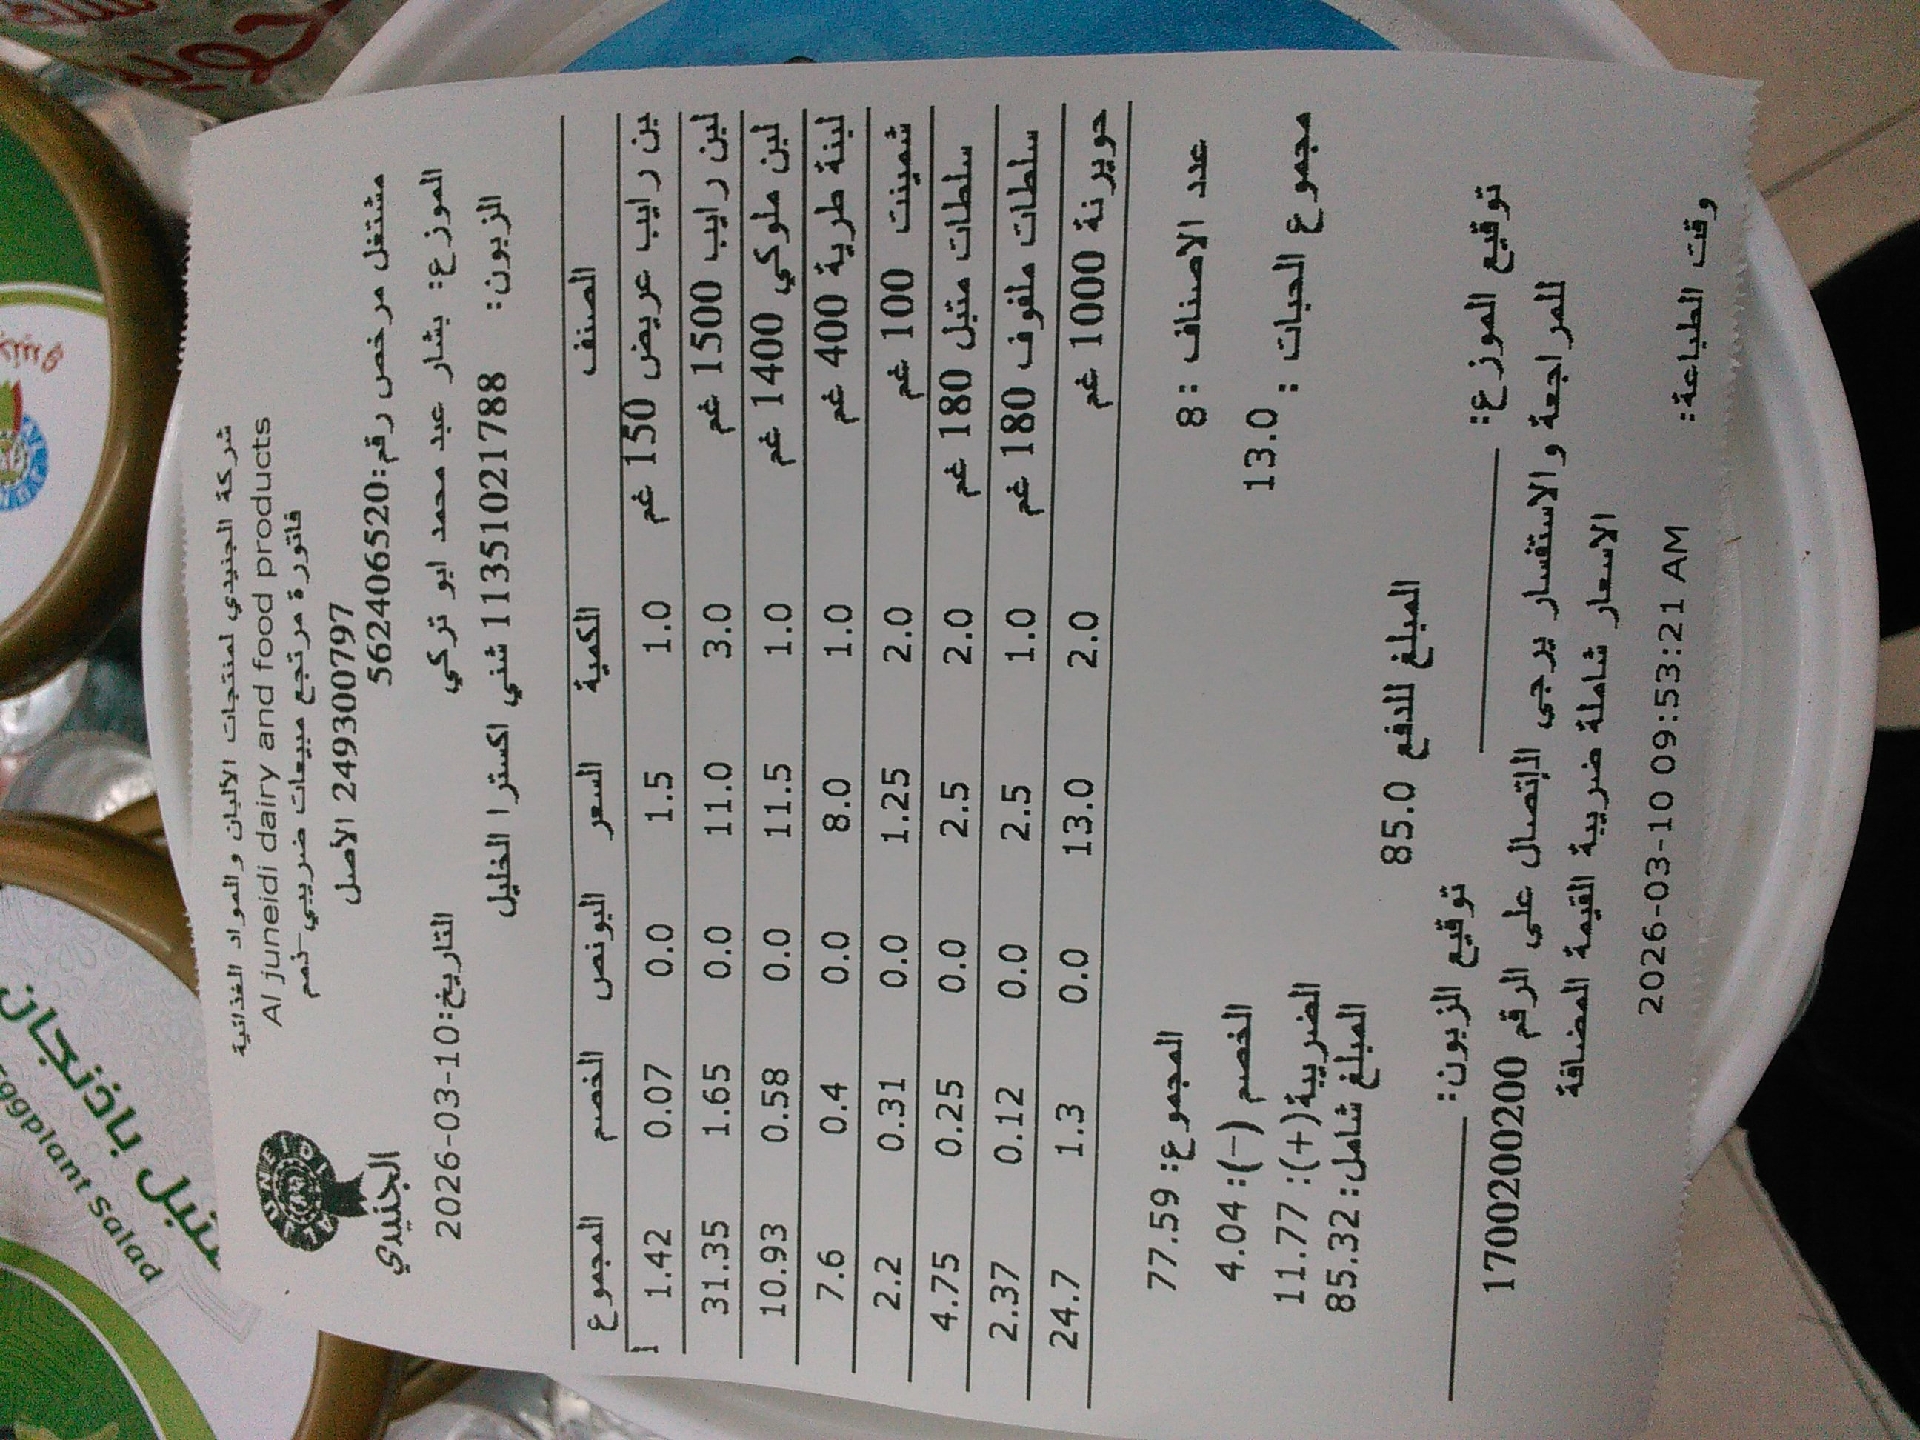 شركة الجنيدي لمنتجات الألبان والمواد الغذائية
Al juneidi dairy and food products
فاتورة مرتجع مبيعات ضريبي-ذمم
249300797 الأصل
مشتغل مرخص رقم:562406520
الجنيدي
الموزع: بشار عبد محمد ابو تركي التاريخ:2026-03-10
الزبون: 11351021788 شني اكسترا الخليل
الصنف الكمية السعر البونص الخصم المجموع
بن رايب عريض 150 غم 1.0 1.5 0.0 0.07 1.42
لبن رايب 1500 غم 3.0 11.0 0.0 1.65 31.35
لبن ملوكي 1400 غم 1.0 11.5 0.0 0.58 10.93
لبنة طرية 400 غم 1.0 8.0 0.0 0.4 7.6
شمينت 100 غم 2.0 1.25 0.0 0.31 2.2
سلطات متبل 180 غم 2.0 2.5 0.0 0.25 4.75
سلطات ملفوف 180 غم 1.0 2.5 0.0 0.12 2.37
جويرنة 1000 غم 2.0 13.0 0.0 1.3 24.7
عدد الاصناف :8 المجموع: 77.59
مجموع الحبات : 13.0 الخصم (-): 4.04
الضريبة(+): 11.77
المبلغ شامل: 85.32
المبلغ للدفع 85.0
توقيع الموزع: توقيع الزبون:
للمراجعة والاستفسار يرجى الإتصال على الرقم 1700200200
الاسعار شاملة ضريبة القيمة المضافة
وقت الطباعة: 2026-03-10 09:53:21 AM
متبل باذنجان
Eggplant Salad